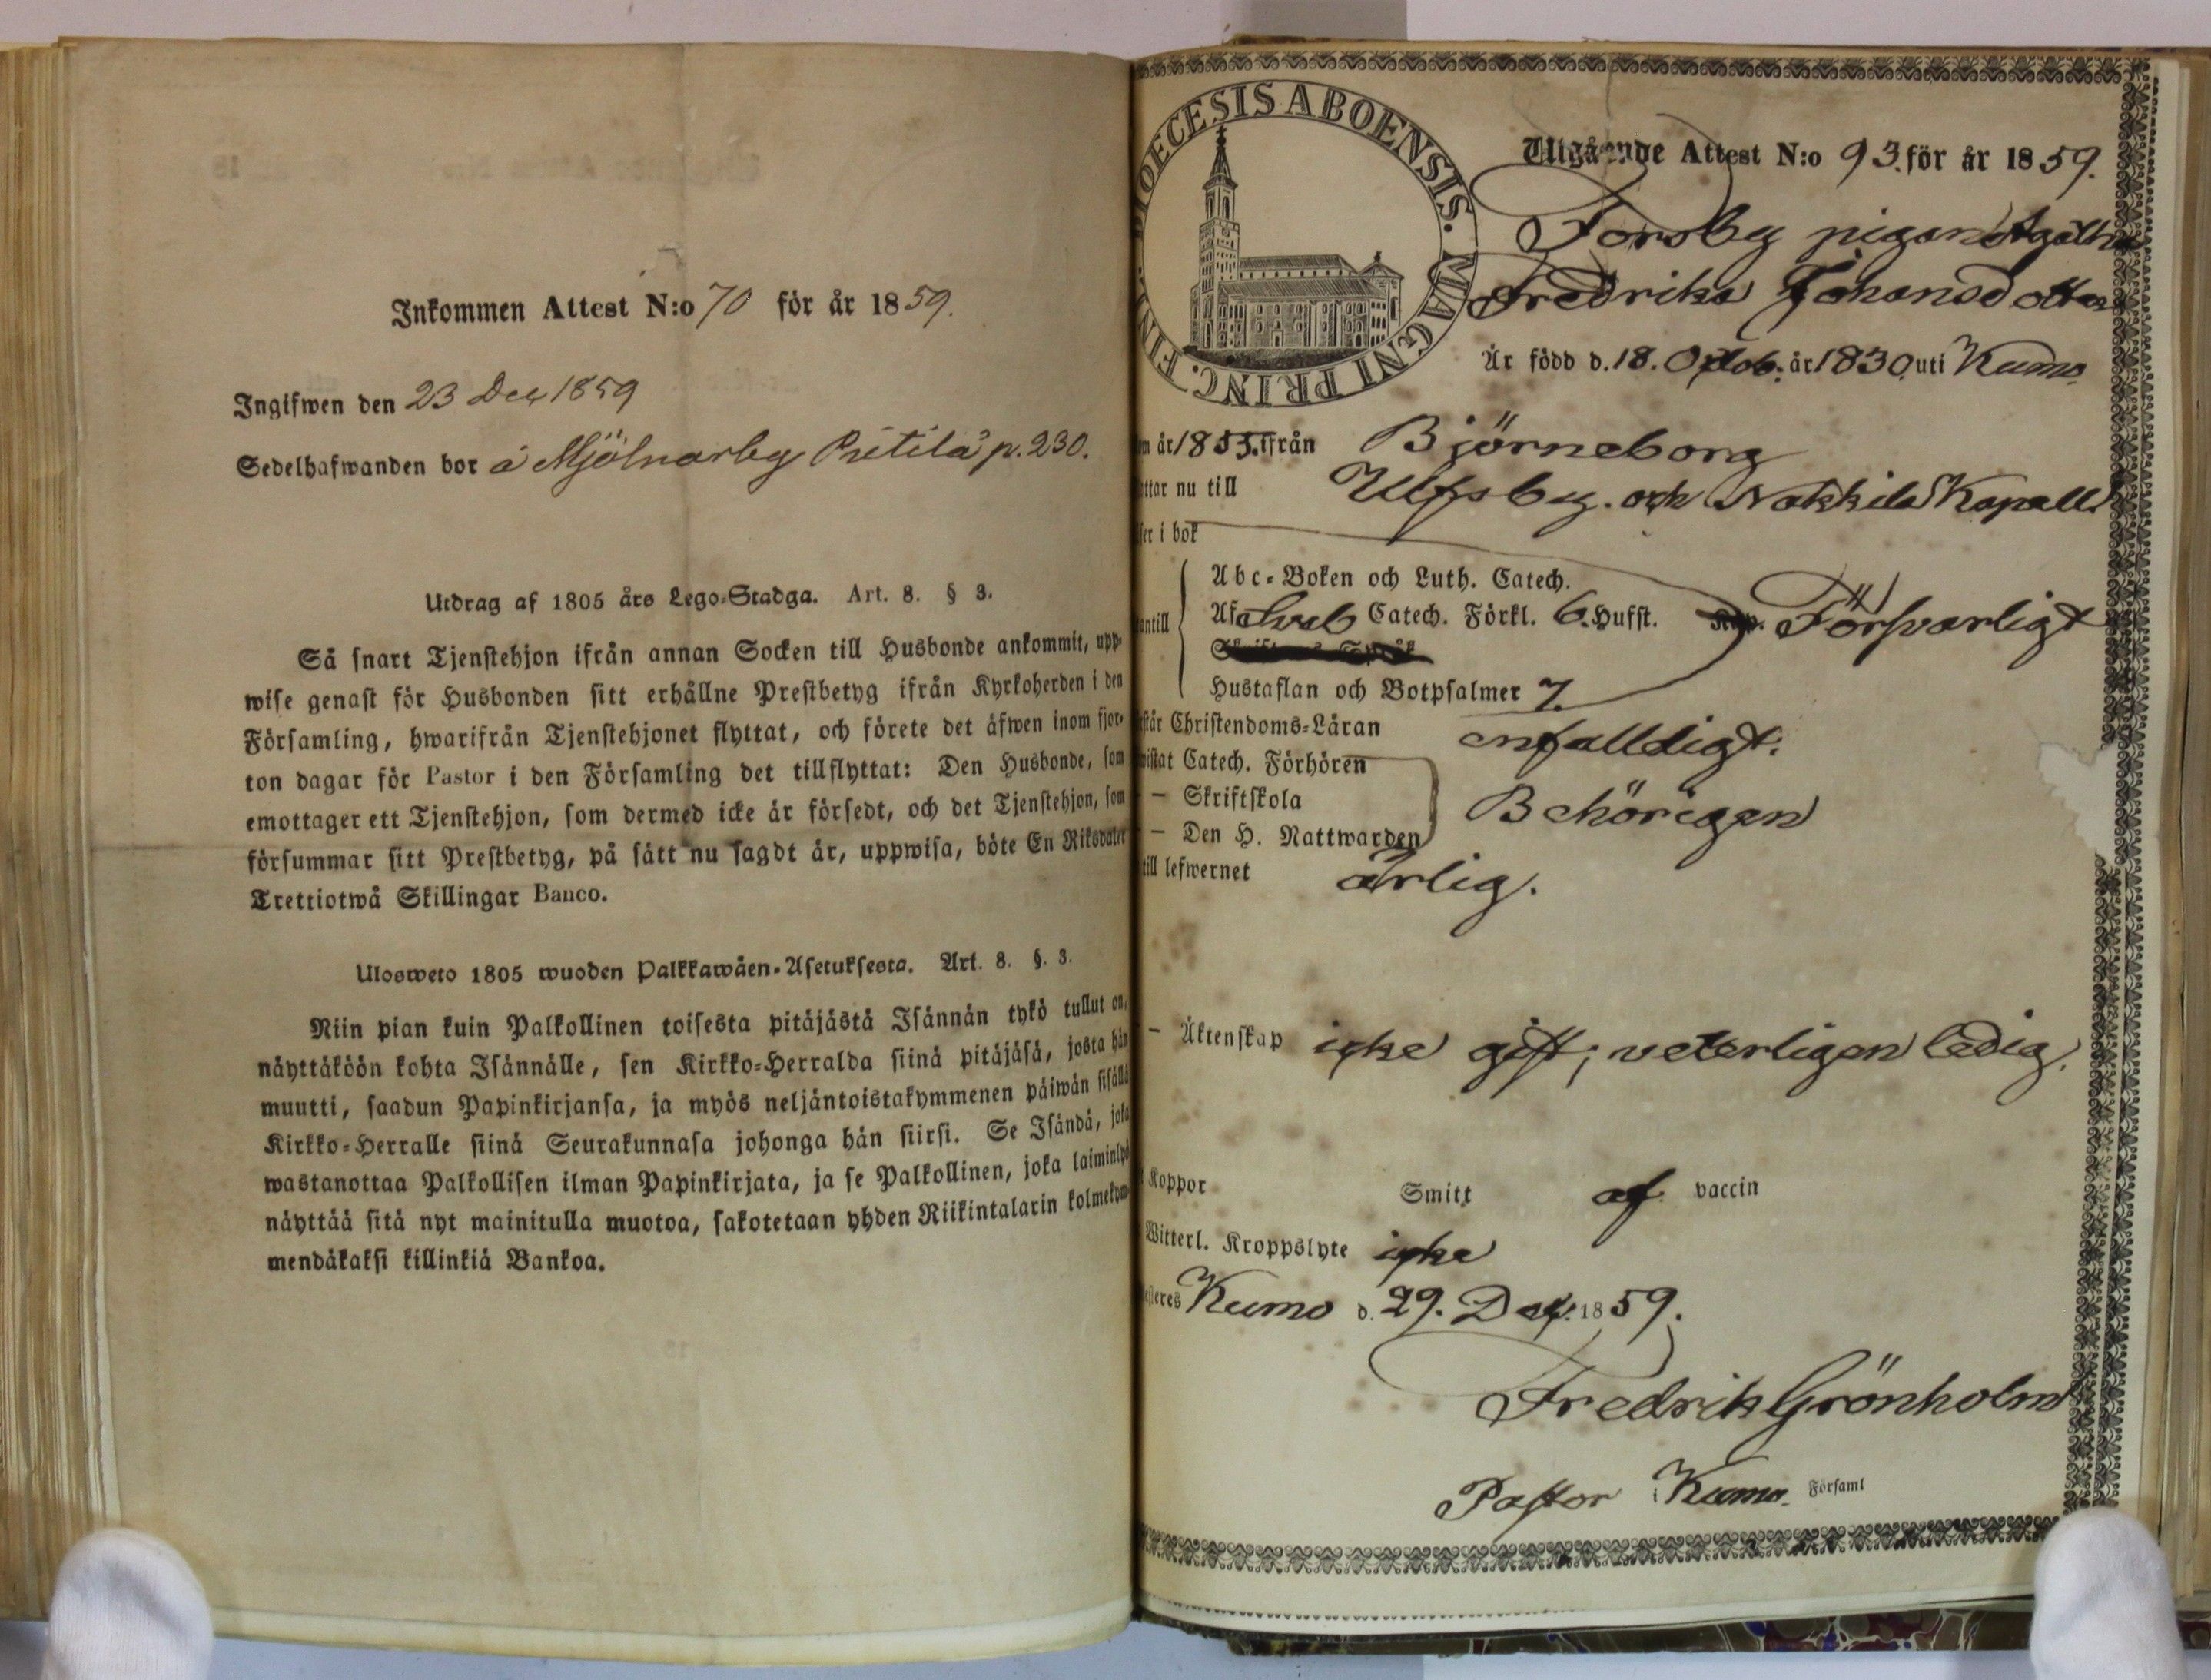 Inkommen Attest N:o 70 för år 1859.
Ingifwen den 23 Dec 1859
Sedelhafwanden bor å Mjölnarby Pietilä p. 230.
Utdrag af 1805 års Lego-Stadga. Art. 8. § 3.
Så snart Tjenstehjon ifrån annan Socken till Husbonde ankommit, upp-
wise genast för Husbonden sitt erhållne Prestbetyg ifrån Kyrkoherden i den
Församling, hwarifrån Tjenstehjonet flyttat, och förete det äfwen inom fjor-
ton dagar för Pastor i den Församling det tillflyttat: Den Husbonde, som
emottager ett Tjenstehjon, som dermed icke är försedt, och det Tjenstehjon, som
försummar sitt Prestbetyg, på sätt nu sagdt är, uppwisa, böte En Riksdaler
Trettiotwå Skillingar Banco.
Ulosweto 1805 wuoden Palkkawäen-Asetuksesta. Art. 8. §. 3.
Niin pian kuin Palkollinen toisesta pitäjästä Isännän tykö tullut on,
näyttäköön kohta Isännälle, sen Kirkko-Herralda siinä pitäjäsä, josta hän
muutti, saadun Papinkirjansa, ja myös neljäntoistakymmenen päiwän sisällä
Kirkko-Herralle siinä Seurakunnasa johonga hän siirsi. Se Isändä, joka
wastanottaa Palkollisen ilman Papinkirjata, ja se Palkollinen, joka laiminlyö
näyttää sitä nyt mainitulla muotoa, sakotetaan yhden Riikintalarin kolmekym-
mendäkaksi killinkiä Bankoa.
DIOECESIS ABOENSIS. MAGNI PRINC. FINL.
Utgående Attest N:o 93. för år 1859.
Forsby pigan Agatha
Fredrika Johansdotter
Är född d. 18. Octob. år 1830 uti Kumo.
om år 1855. ifrån Björneborg
ttar nu till Ulfsby. och Nakkila Kapell.
ser i bok
antill
Abc-Boken och Luth. Catech.
Af Sveb Catech. Förkl. 6. Hufst. Försvarligt
Hustaflan och Botpsalmer 7.
står Christendoms-Läran enfalldigt.
wistat Catech. Förhören
— Skriftskola Behörigen
— Den H. Nattwarden
till lefwernet ärlig.
— Äktenskap icke gift; veterligen ledig.
Koppor Smitt af vaccin
Witterl. Kroppslyte icke
esteres Kumo d. 29. Dec. 1859.
Fredrik Grönholm
Pastor i Kumo. Församl